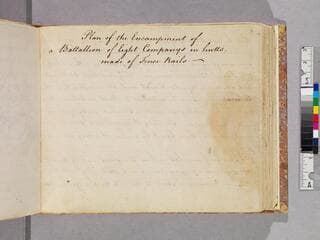 Plan of the Encampment of
a Battallion of Eight Companys in hutts
made of fence Rails —